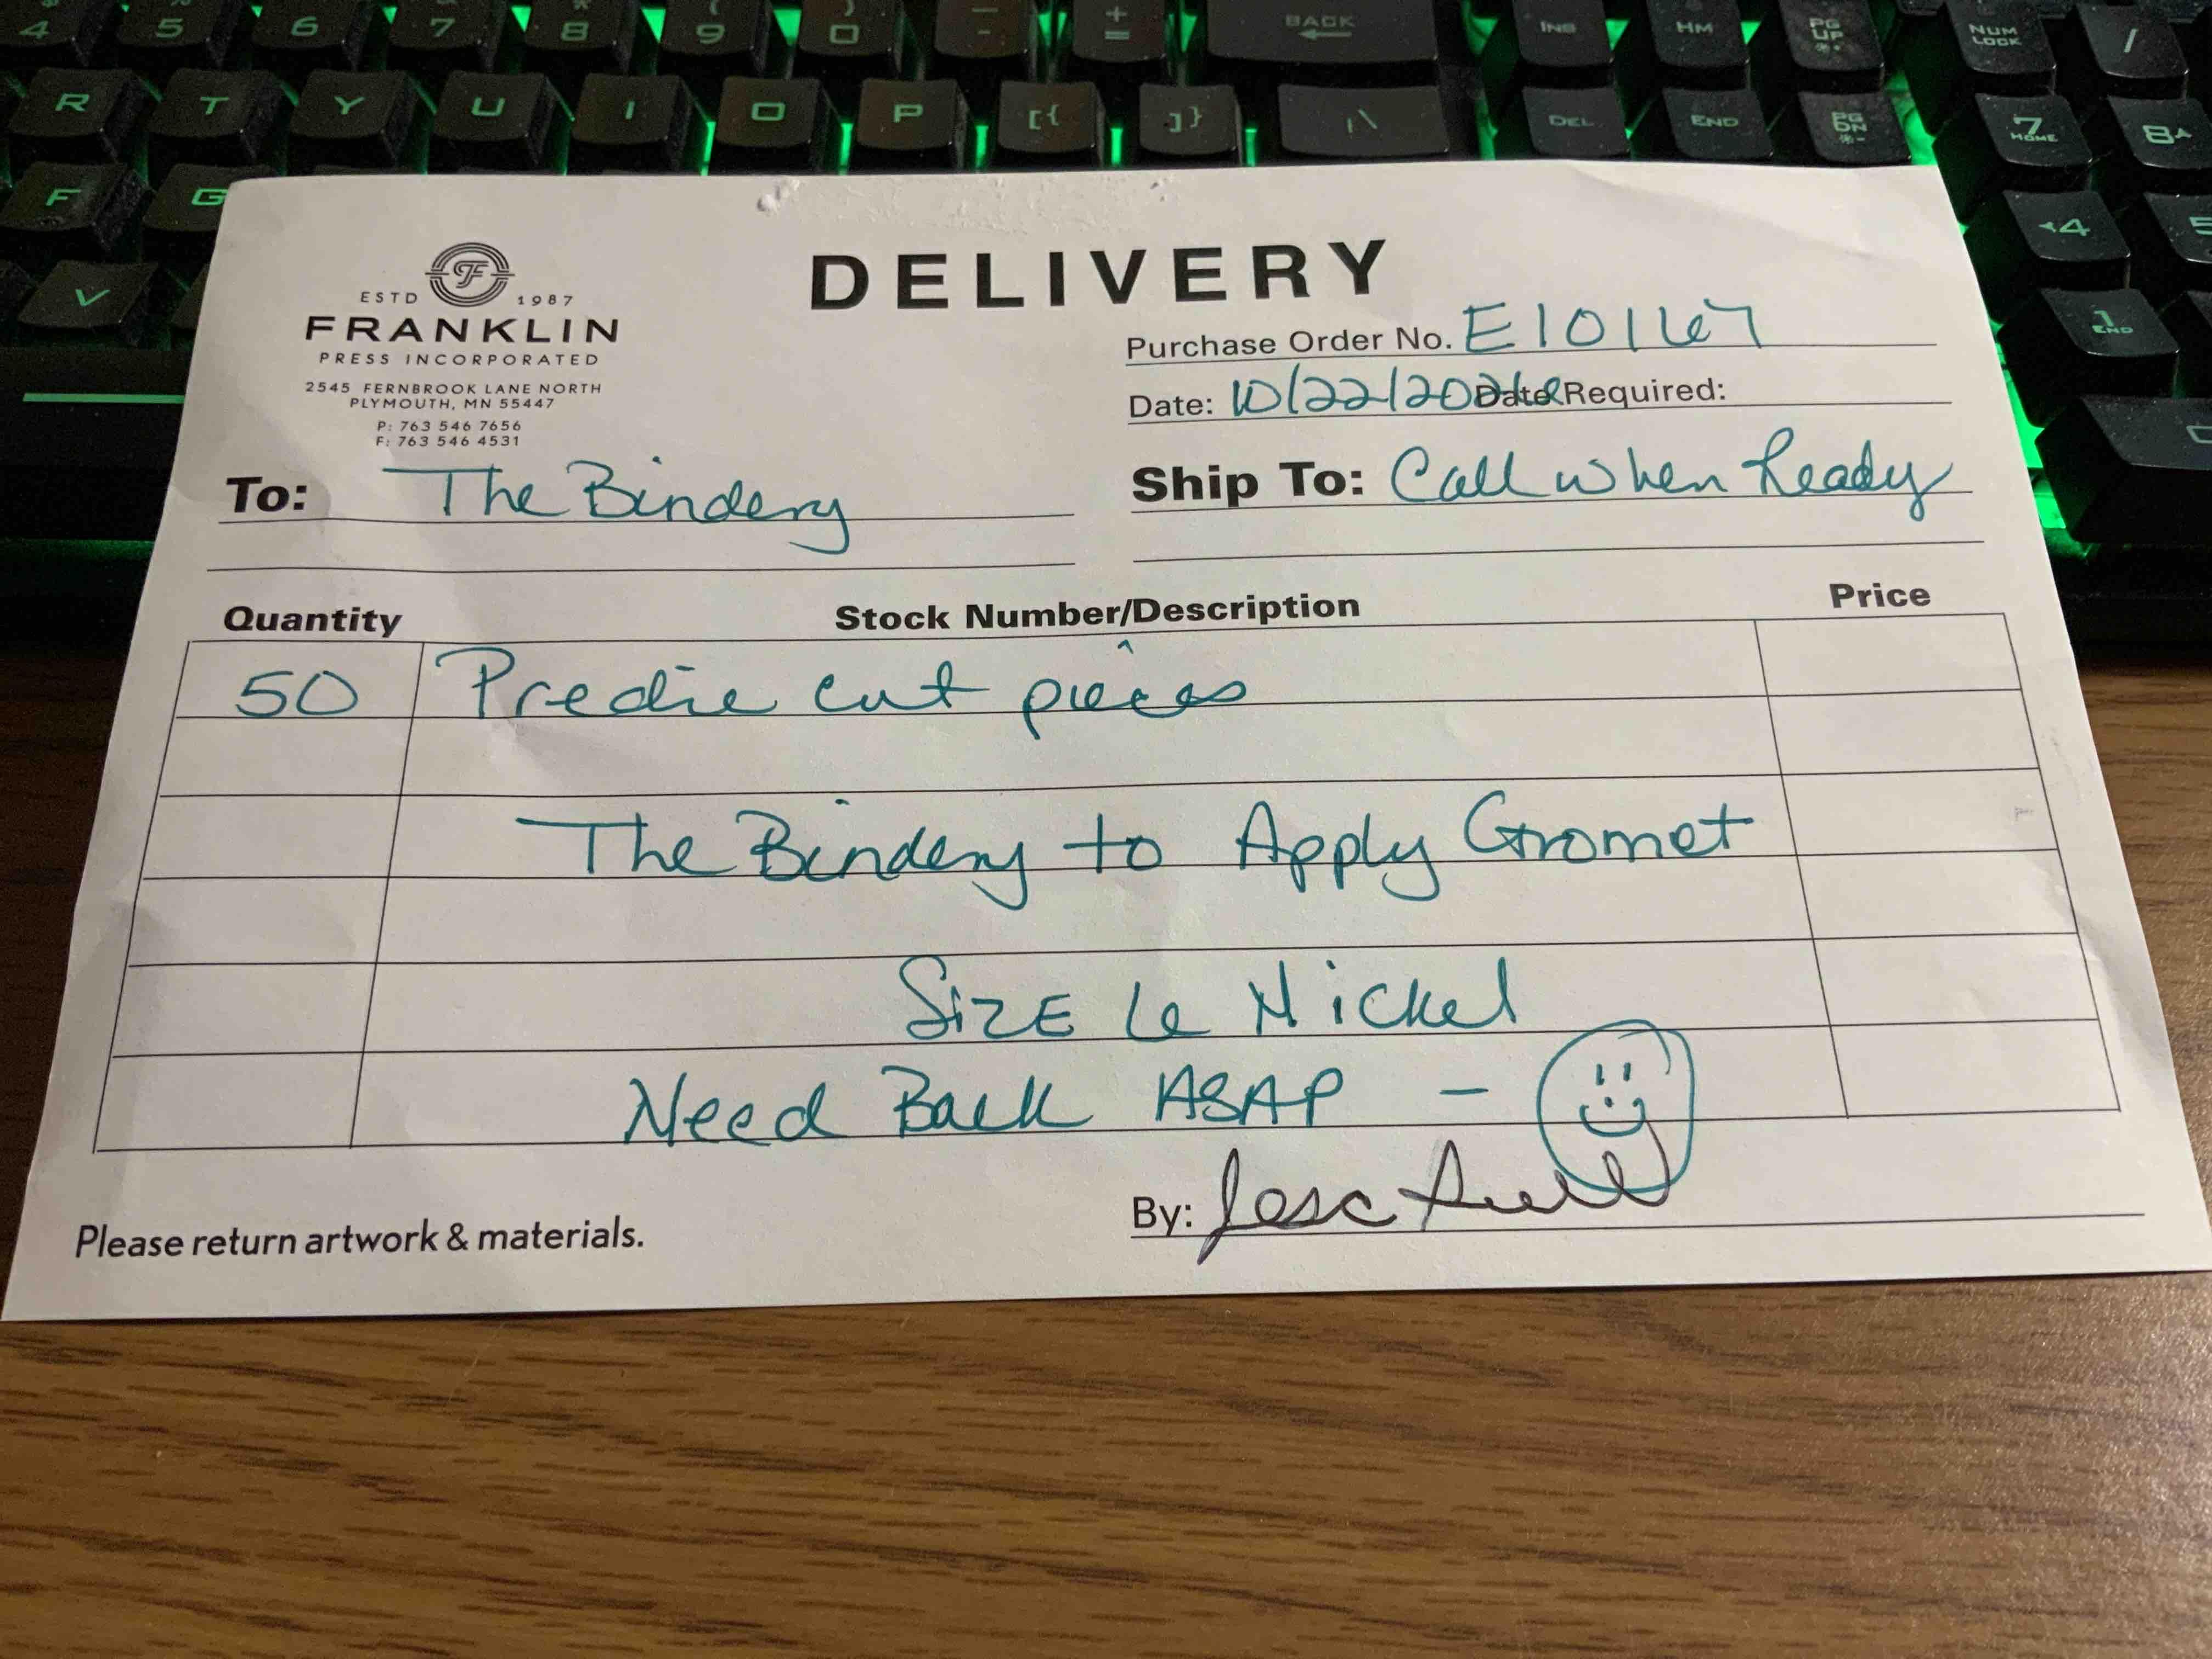 4 5 6 7 8 9 0 - + = BACK INS HM PG UP NUM LOCK /
R T Y U I O P [{ ]} \ DEL END PG DN 7 HOME 8
F G 4 5
V 1 END
ESTD 1987
FRANKLIN
PRESS INCORPORATED
2545 FERNBROOK LANE NORTH
PLYMOUTH, MN 55447
P: 763 546 7656
F: 763 546 4531
DELIVERY
Purchase Order No. E10167
Date: 10/22/ Date Required:
To: The Bindery
Ship To: Call when Ready
Quantity Stock Number/Description Price
50 Predie cut pieces
The Bindery to Apply Gromet
SIZE 6 Nickel
Need Back ASAP -
Please return artwork & materials.
By: